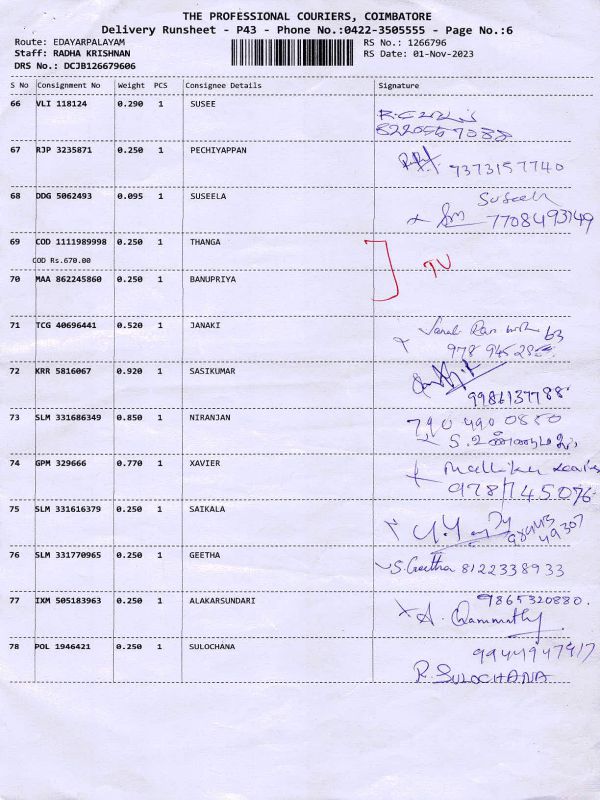 THE PROFESSIONAL COURIERS, COIMBATORE
Delivery Runsheet - P43 - Phone No.:0422-3505555 - Page No.:6
Route: EDAYARPALAYAM RS No.: 1266796
Staff: RADHA KRISHNAN RS Date: 01-Nov-2023
DRS No.: DCJB126679606
S No Consignment No Weight PCS Consignee Details Signature
66 VLI 118124 0.290 1 SUSEE
67 RJP 3235871 0.250 1 PECHIYAPPAN 7373157740
68 DDG 5062493 0.095 1 SUSEELA Suseela
7708493149
69 COD 1111989998 0.250 1 THANGA
COD Rs.670.00
70 MAA 862245860 0.250 1 BANUPRIYA
71 TCG 40696441 0.520 1 JANAKI
72 KRR 5816067 0.920 1 SASIKUMAR
9986137788
73 SLM 331686349 0.850 1 NIRANJAN 790 490 0880
74 GPM 329666 0.770 1 XAVIER
9787145076
75 SLM 331616379 0.250 1 SAIKALA
76 SLM 331770965 0.250 1 GEETHA S. Geetha 8122338933
77 IXM 505183963 0.250 1 ALAKARSUNDARI 9865320880.
78 POL 1946421 0.250 1 SULOCHANA 9944947917
R. SULOCHANA